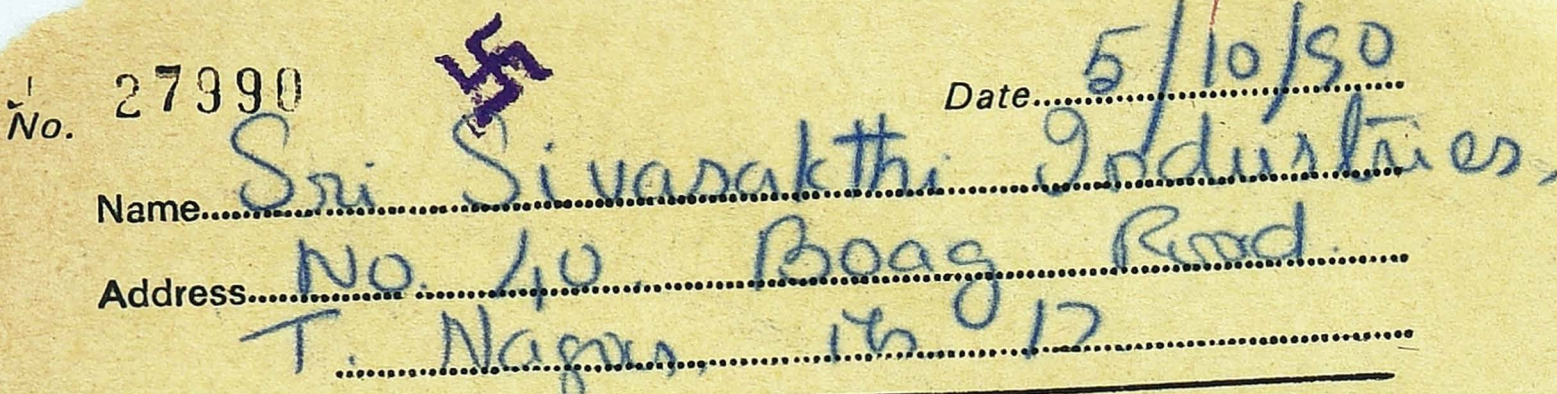 No. 27990 Date 5/10/90
Name Sri Sivasakthi Industries,
Address No. 40. Boag Road.
T. Nagar, 17